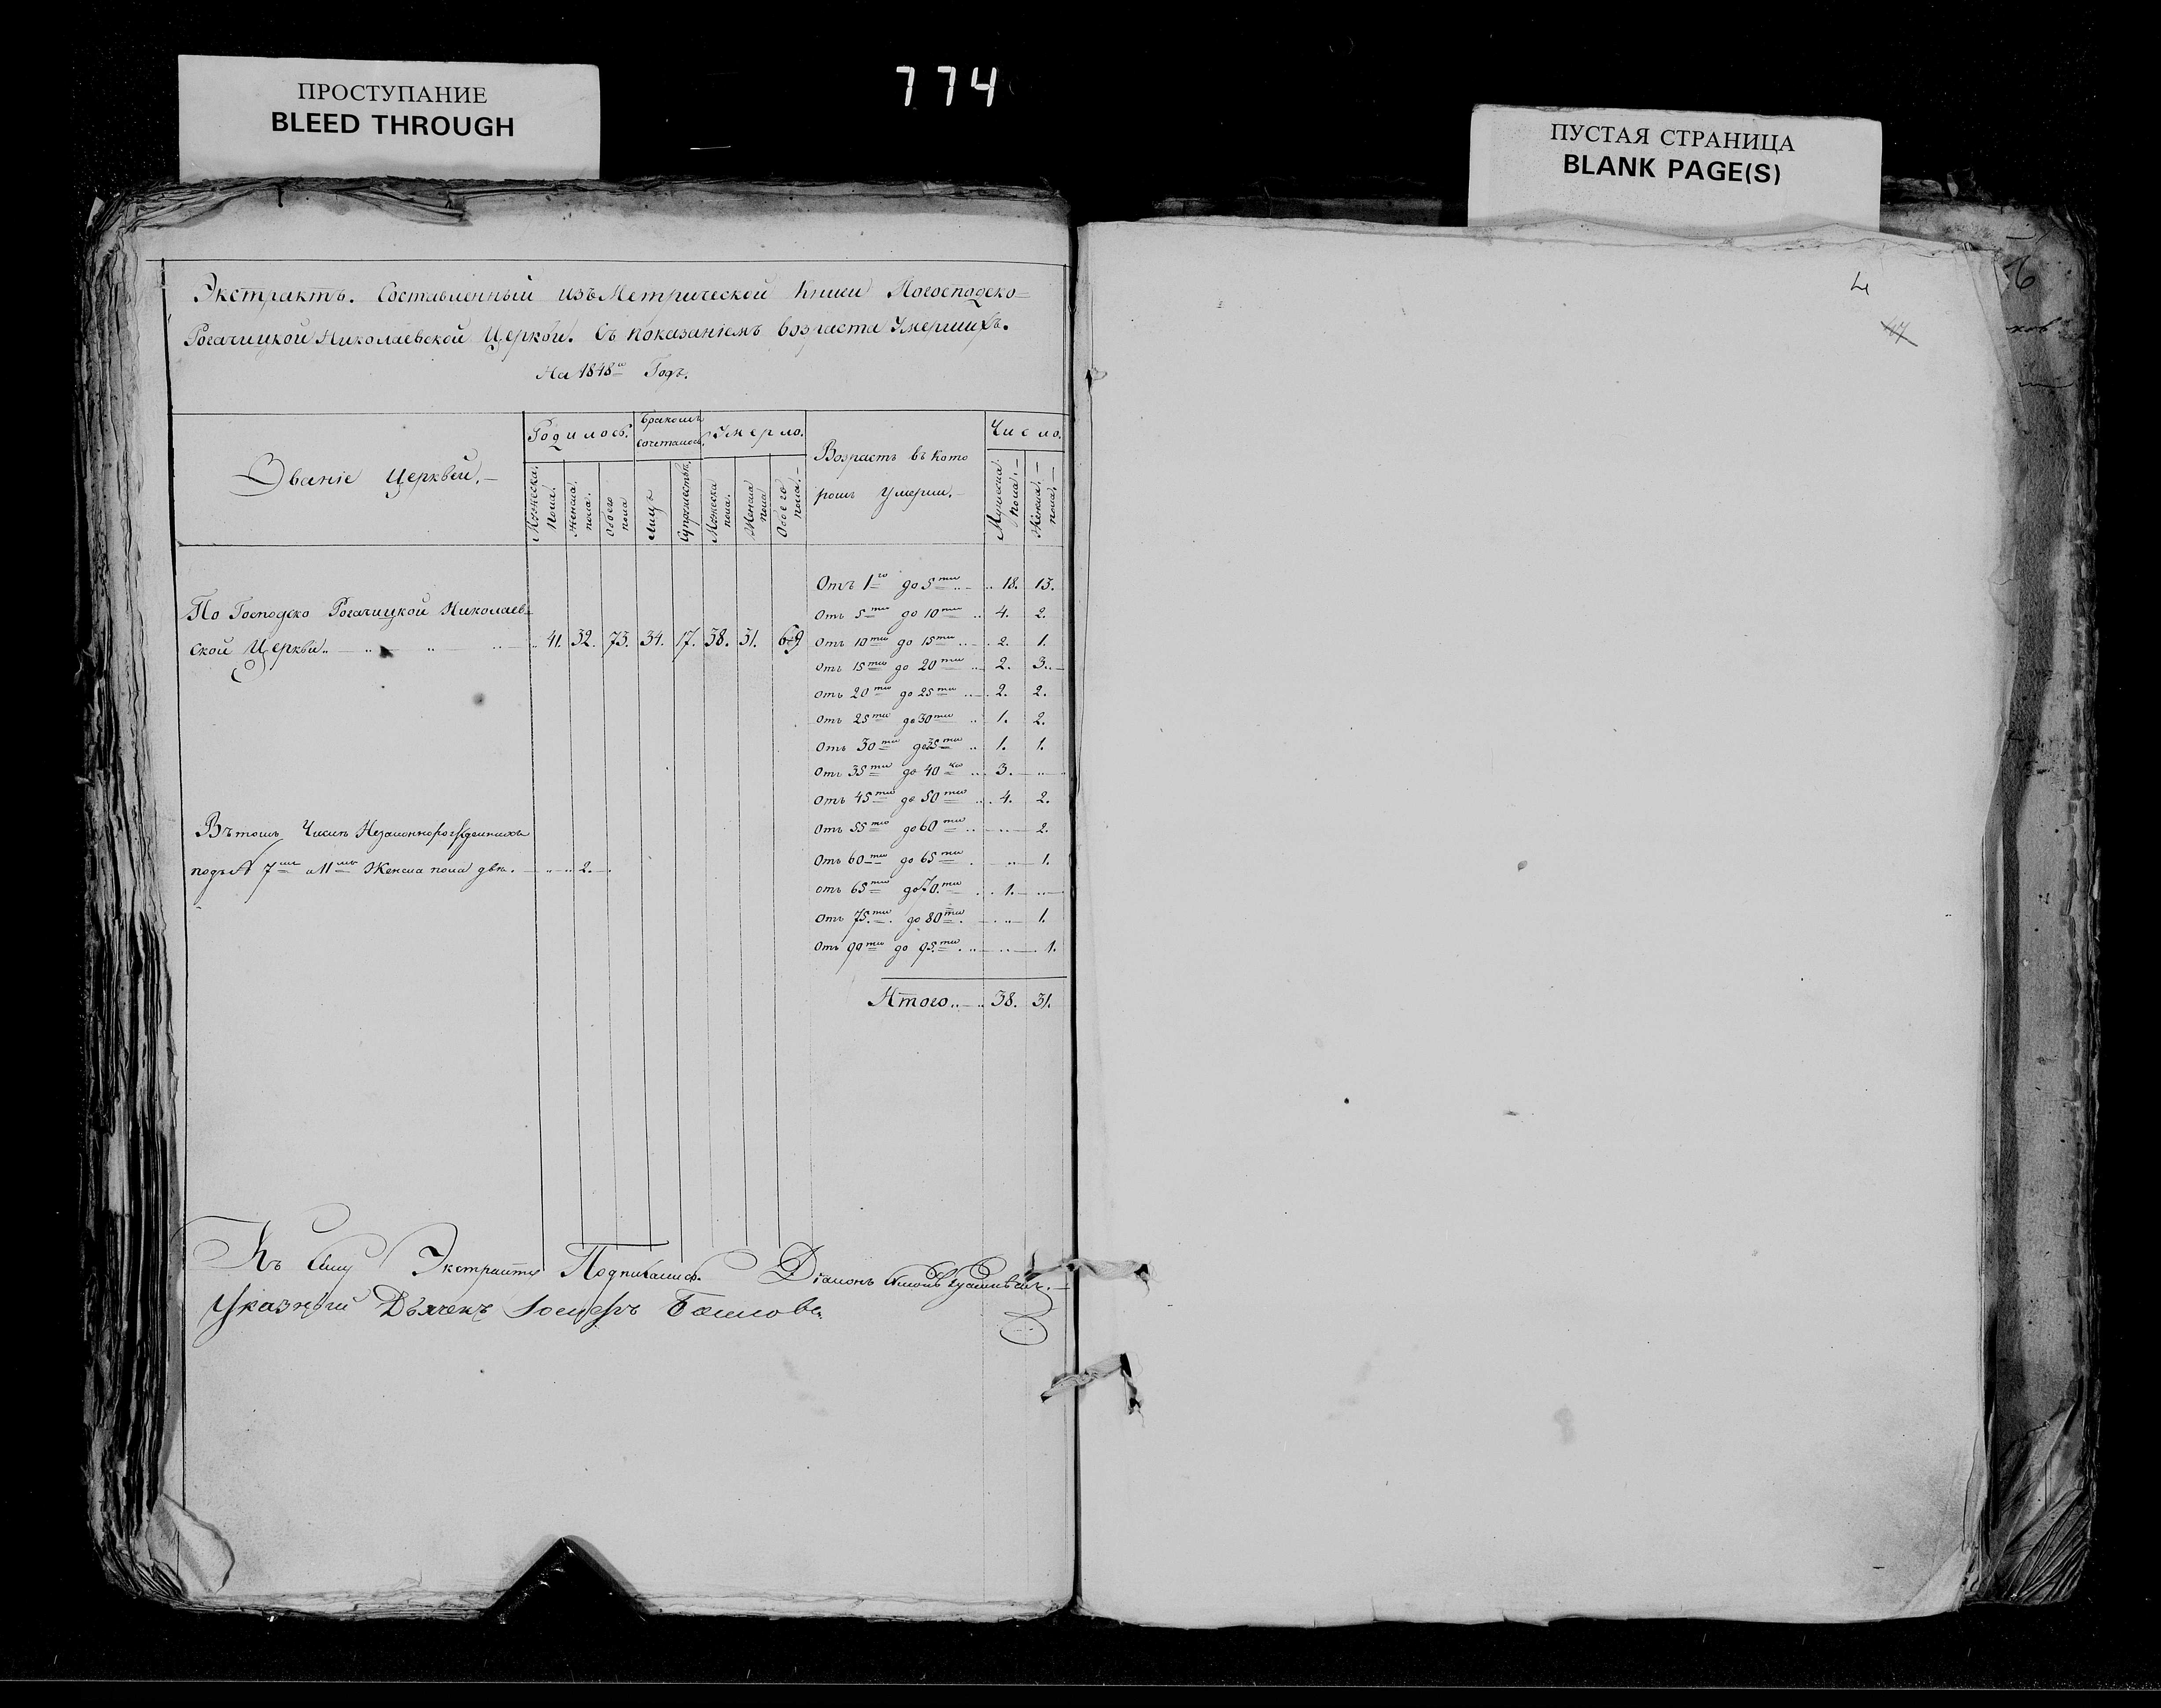 ПРОСТУПАНИЕ
BLEED THROUGH
774
ПУСТАЯ СТРАНИЦА
BLANK PAGE(S)
Экстрактъ. Составленный изъ Метрической Книги Погосподско=
Рогачицкой Николаевской Церкви. Съ показаніемъ возраста Умершихъ.
На 1848й Годъ.
Званіе Церквей.
Родилось.
Мужеска пола.
Женска пола.
Обоего пола
Бракомъ сочеталось.
Лицъ
Супружествъ.
Умерло.
Мужеска пола.
Женска пола
Обоего пола.
Возрастъ въ кото
ромъ умерли.
Число.
Мужеска пола.
Женска пола.
По Господско Рогачицкой Николаев=
ской Церкви.. 41. 32. 73. 34. 17. 38. 31. 69
Отъ 1го до 5ти 18. 13.
Отъ 5ти до 10ти 4. 2.
Отъ 10ти до 15ти 2. 1.
Отъ 15ти до 20ти 2. 3.
Отъ 20ти до 25ти 2. 2.
Отъ 25ти до 30ти 1. 2.
Отъ 30ти до 35ти 1. 1.
Отъ 35ти до 40ка 3. ..
Отъ 45ти до 50ти 4. 2.
Отъ 55ти до 60ти .. 2.
Отъ 60ти до 65ти .. 1.
Отъ 65ти до 70.ти 1. ..
Отъ 75.ти до 80ти. .. 1.
Отъ 90ти до 95.ти .. 1.
Итого.. 38. 31.
Въ томъ Числѣ Незаконнорожденныхъ
подъ № 7мъ и 11мъ Женска пола двѣ. 2.
Къ сему Экстракту Подписались. Діаконъ
Указный Дьячекъ Іосифъ
4
47
6